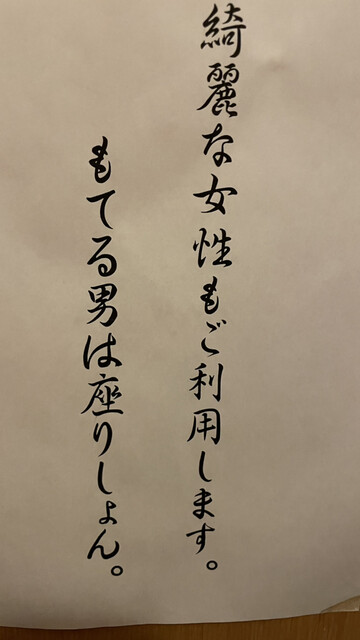 綺麗な女性もご利用します。
もてる男は座りしょん。